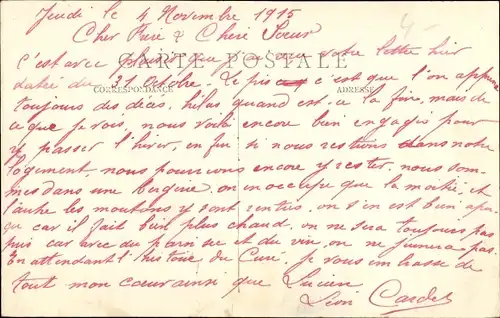 Jeudi le 4 Novembre 1915
Cher Frère & Chère Soeur
CARTE POSTALE
C'est avec plaisir que j'ai reçu votre lettre hier
datée du 31 Octobre. Le pis c'est que l'on apprend
CORRESPONDANCE
ADRESSE
toujours des décès, hélas quand est-ce la fin, mais de
ce que je vois, nous voilà encore bien engagés pour
y passer l'hiver, enfin si nous restions dans notre
logement, nous pourrions encore y rester, nous som-
mes dans une Bergerie, on n'occupe que la moitié, et
l'autre les moutons y sont rentrés, on s'en est bien
car il fait bien plus chaud, on ne sera toujours pas
car avec du et du vin, on ne pas.
En attendant l'histoire du Curé, je vous embrasse de
tout mon coeur ainsi que Lucien
Léon Cardet